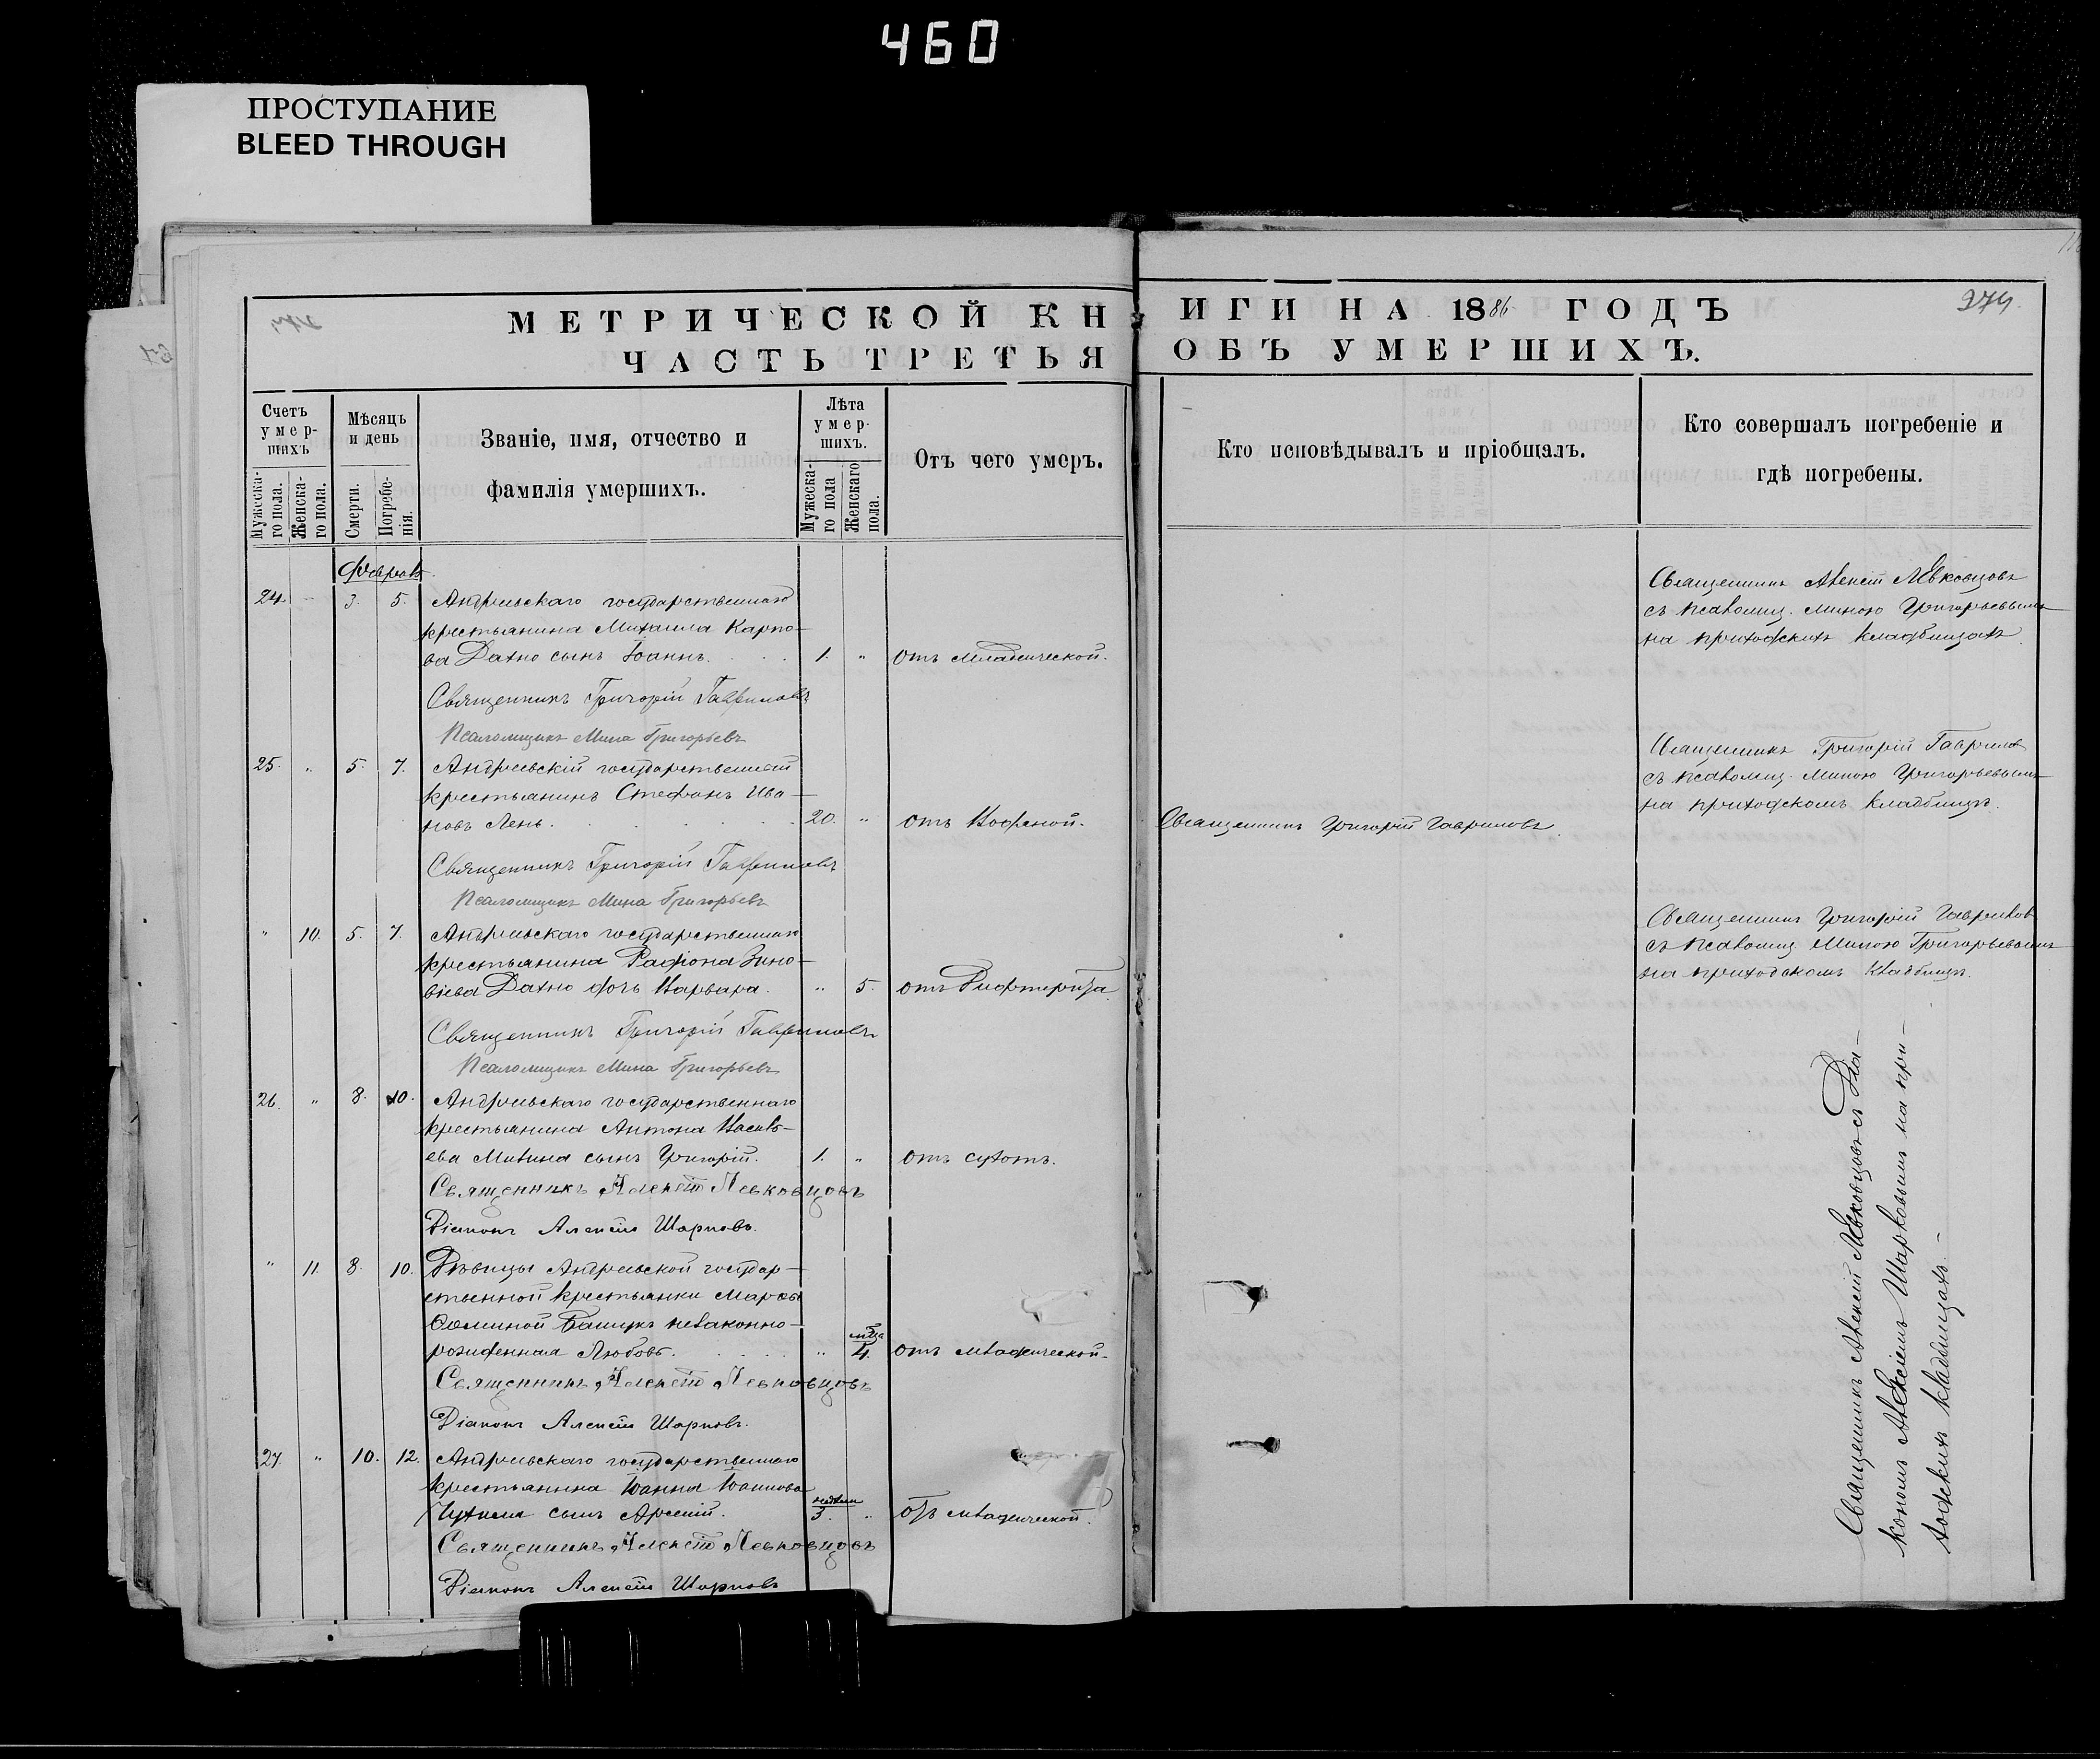 460
ПРОСТУПАНИЕ
BLEED THROUGH
МЕТРИЧЕСКОЙ КНИГИ НА 1886 ГОДЪ
274.
ЧАСТЬ ТРЕТЬЯ ОБЪ УМЕРШИХЪ.
Счетъ умер-шихъ
Мужеска-го пола.
Женска-го пола.
Мѣсяцъ и день
Смерти.
Погребе-нія.
Званіе, имя, отчество и
фамилія умершихъ.
Лѣта умер-шихъ.
Мужеска-го пола
Женскаго пола.
Отъ чего умеръ.
Кто исповѣдывалъ и пріобщалъ.
Кто совершалъ погребеніе и
гдѣ погребены.
24. 3. 5. Андреевскаго государственнаго
крестьянина Михаила Карпо-
ва Дахно сынъ Іоаннъ. 1. " отъ младенческой.
Священникъ Алексій Левковцовъ
съ псаломщ. Миною Григорьевымъ
на приходскихъ кладбищахъ
Священникъ Григорій Гавриловъ
Псаломщикъ Мина Григорьевъ
25. " 5. 7. Андреевскій государственный
крестьянинъ Стефанъ Ива-
новъ Лень. 20. " отъ Водяной.
Священникъ Григорій Гавриловъ.
Священникъ Григорій Гавриловъ
съ псаломщ. Миною Григорьевымъ
на приходскомъ кладбищѣ.
Священникъ Григорій Гавриловъ
Псаломщикъ Мина Григорьевъ
" 10. 5. 7. Андреевскаго государственнаго
крестьянина Родіона Зино-
віева Дахно дочь Варвара. " 5. отъ Дифтерита.
Священникъ Григорій Гавриловъ
съ псаломщ Миною Григорьевымъ
на приходскомъ кладбищѣ.
Священникъ Григорій Гавриловъ
Псаломщикъ Мина Григорьевъ
26. " 8. 10. Андреевскаго государственнаго
крестьянина Антона Василь-
ева сынъ Григорій. 1. " отъ сухотъ.
Священникъ Алексій Левковцовъ
Діаконъ Алексій Шарковъ.
" 11. 8. 10. Дѣвицы Андреевской государ-
ственной крестьянки Марѳы
незаконно-
рожденная Любовь. " 4. отъ младенческой.
Священникъ Алексій Левковцовъ
Діаконъ Алексій Шарковъ.
27. " 10. 12. Андреевскаго государственнаго
крестьянина Іоанна Іоаннова
сынъ Арсеній. недѣли 3. " отъ младенческой.
Священникъ Алексій Левковцовъ
Діаконъ Алексій Шарковъ
Священникъ Алексій Левковцовъ съ Діа-
кономъ Алексіемъ Шарковымъ на при-
ходскихъ кладбищахъ.